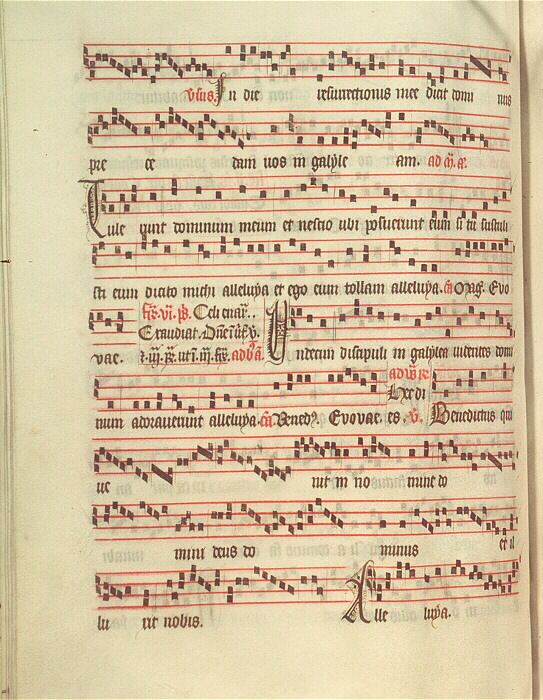 vsus. In die resurrectionis mee dicit domi nus
pre ce dam uos in galyle am. ad
Tule runt dominum meum et nescio ubi posuerunt eum si tu sustuli
sti eum dicito michi alleluya et ego eum tollam alleluya. Evo
vae. Celi enar.
Exaudiat.
Undecim discipuli in galylea uidentes domi
num adorauerunt alleluya Bened. Evovae. es. v. Benedictus qui
Hec di
ue nit in no mine do
mini deus do minus et il
lu xit nobis. Alle luya.